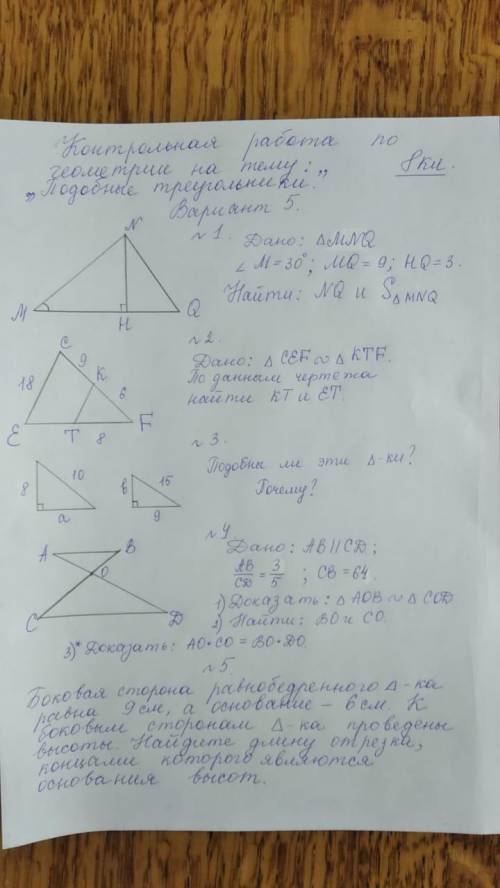 Контрольная работа по
геометрии на тему: „
„Подобные треугольники.
8 кл.
Вариант 5.
№1. Дано: ΔMNQ
∠M=30°; MQ=9; HQ=3.
Найти: NQ и S ΔMNQ
N
M
H
Q
№2.
Дано: ΔCEF ∾ ΔKTF.
По данным чертежа
найти KT и ET.
C
9
K
18
6
E
T
8
F
№3.
Подобны ли эти Δ-ки?
Почему?
8
10
a
в
15
9
№4
Дано: AB||CD;
AB/CD = 3/5 ; CB=64.
1) Доказать: ΔAOB ∾ ΔCOD
2) Найти: BO и CO.
3)* Доказать: AO·CO=BO·DO.
A
B
O
C
D
№5.
Боковая сторона равнобедренного Δ-ка
равна 9см, а основание – 6см. К
боковым сторонам Δ-ка проведены
высоты. Найдите длину отрезка,
концами которого являются
основания высот.